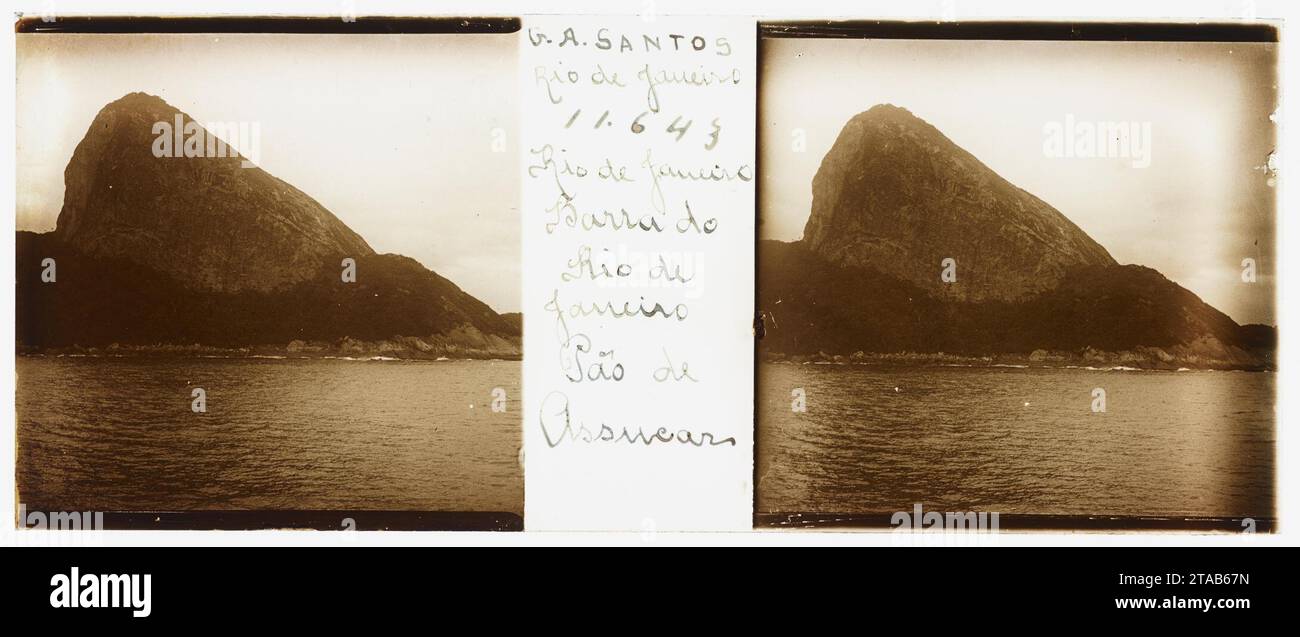 G. A. SANTOS
Rio de Janeiro
11.643
Rio de Janeiro
Barra do
Rio de
Janeiro
Pão de
Assucar
alamy
Image ID: 2TAB67N
www.alamy.com